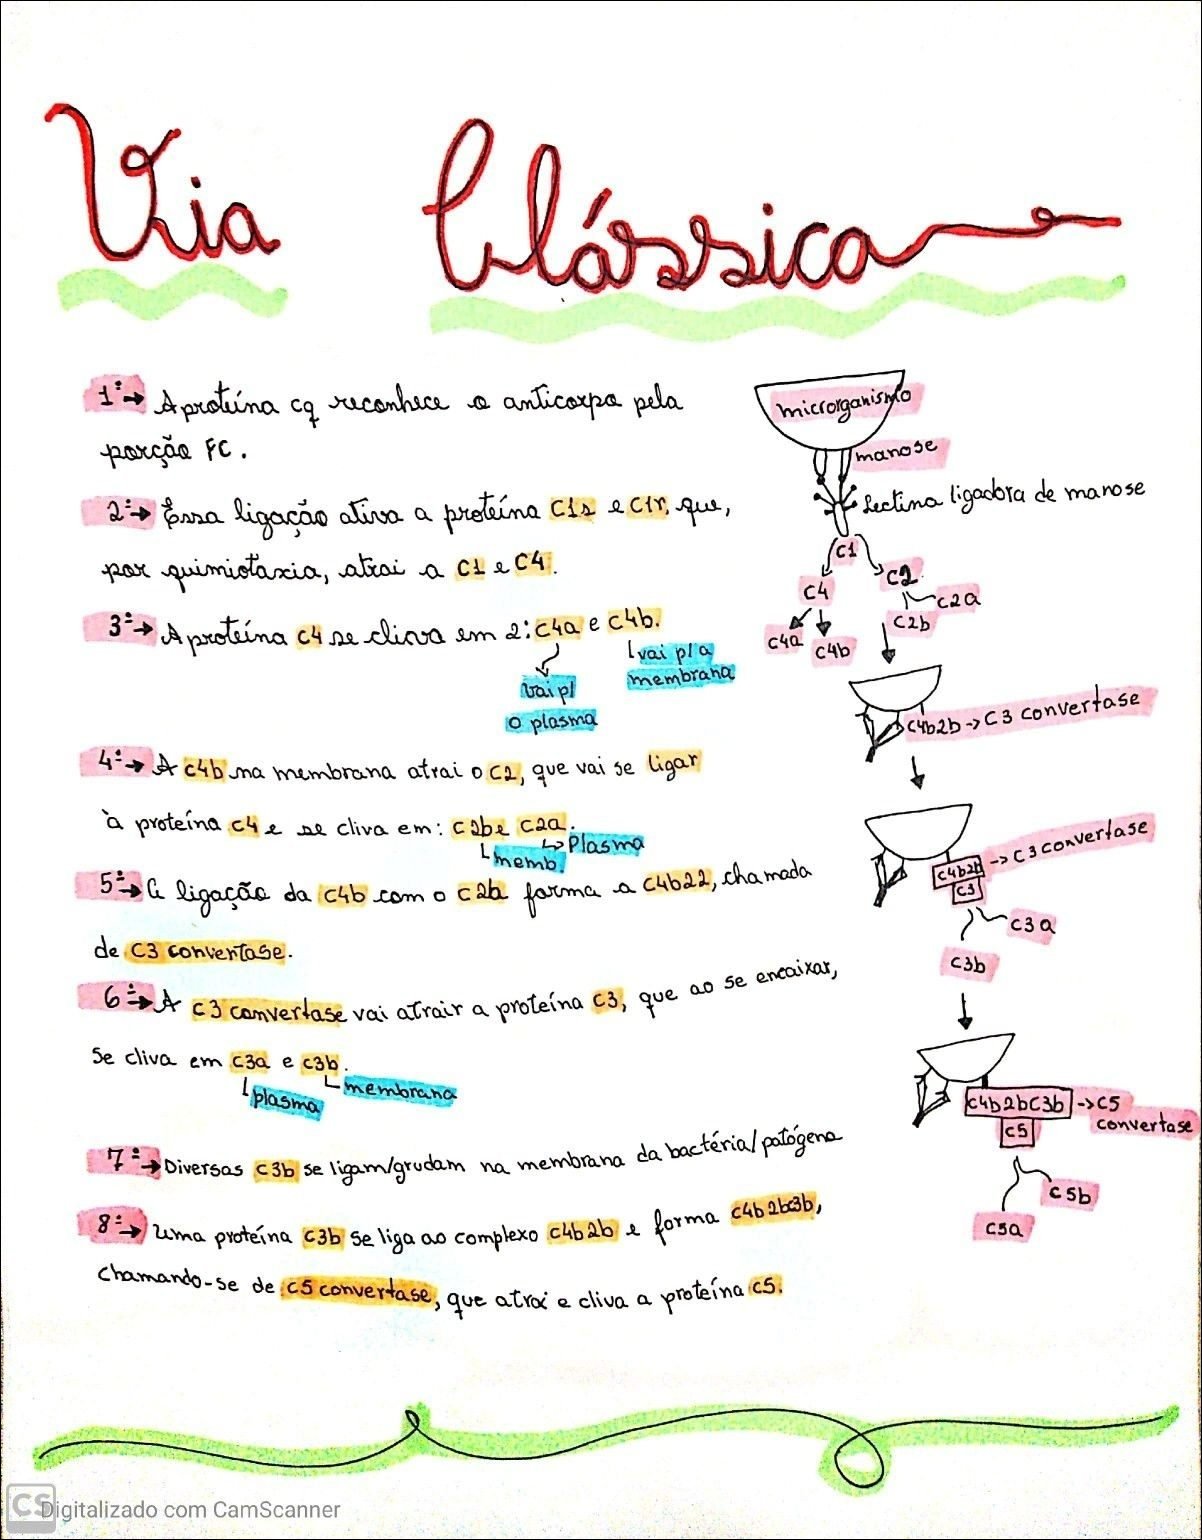 Via Clássica
1º → A proteína cq reconhece o anticorpo pela
porção FC.
2º → Essa ligação ativa a proteína C1s e C1r, que,
por quimiotaxia, atrai a C1 e C4.
3º → A proteína C4 se cliva em 2: C4a e C4b.
vai p/
o plasma
vai p/ a
membrana
4º → A C4b na membrana atrai o C2, que vai se ligar
à proteína C4 e se cliva em: C2b e C2a.
memb.
Plasma
5º → A ligação da C4b com o C2b forma a C4b22, chamada
de C3 convertase.
6º → A C3 convertase vai atrair a proteína C3, que ao se encaixar,
se cliva em C3a e C3b.
plasma
membrana
7º → Diversas C3b se ligam/grudam na membrana da bactéria/patógeno
8º → Uma proteína C3b se liga ao complexo C4b2b e forma C4b2bc3b,
chamando-se de C5 convertase, que atrai e cliva a proteína C5.
microrganismo
manose
Lectina ligadora de manose
C1
C4
C2
C2a
C2b
C4a
C4b
C4b2b → C3 convertase
C4b2b → C3 convertase
C3
C3a
C3b
C4b2bC3b → C5
convertase
C5
C5b
C5a
CS Digitalizado com CamScanner